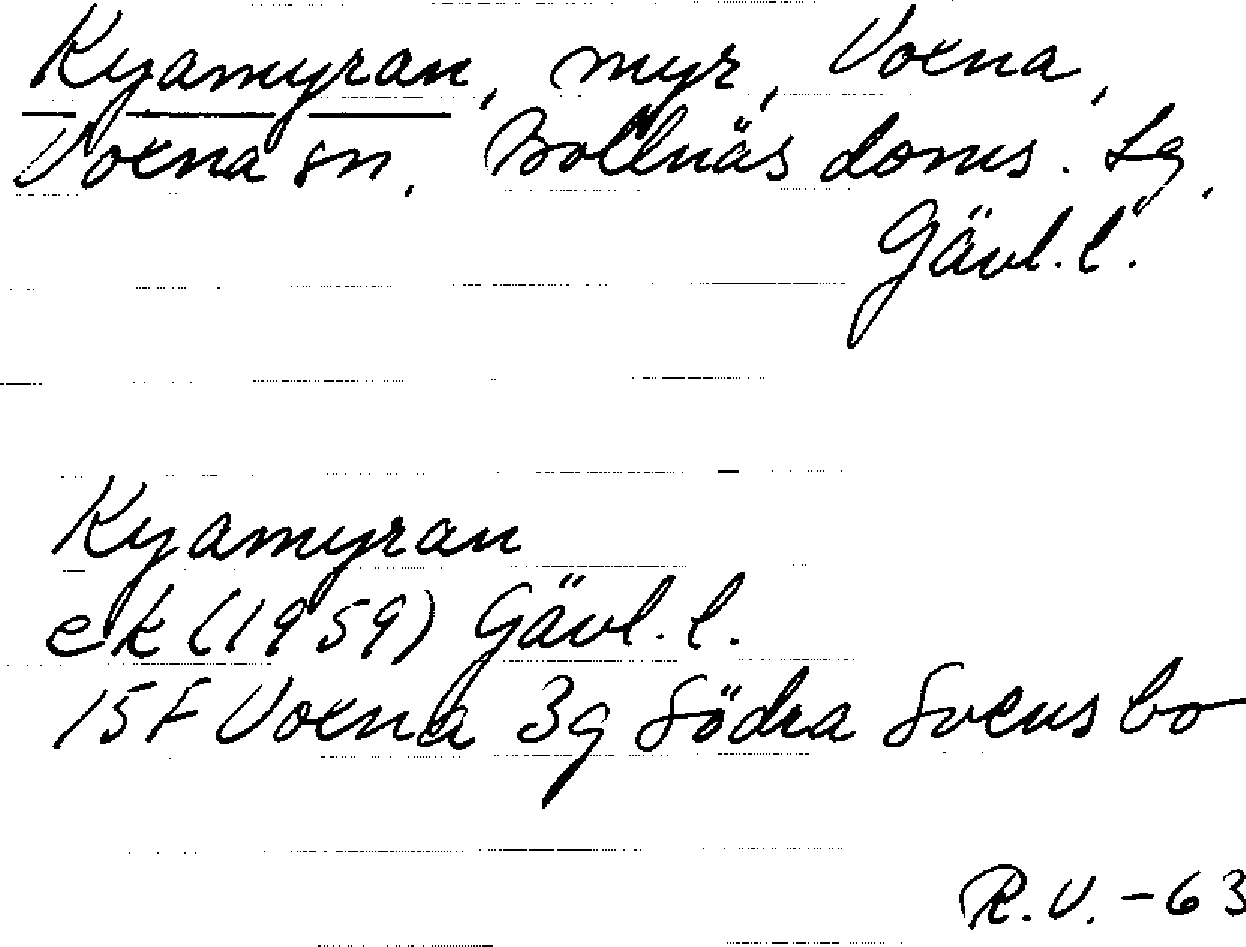 Kyamyran, myr, Voxna,
Voxna sn, Bollnäs doms. Lg,
Gävl. l.
Kyamyran
ek (1959) Gävl. l.
15F Voxna 3g Södra Svensbo
R.V. -63